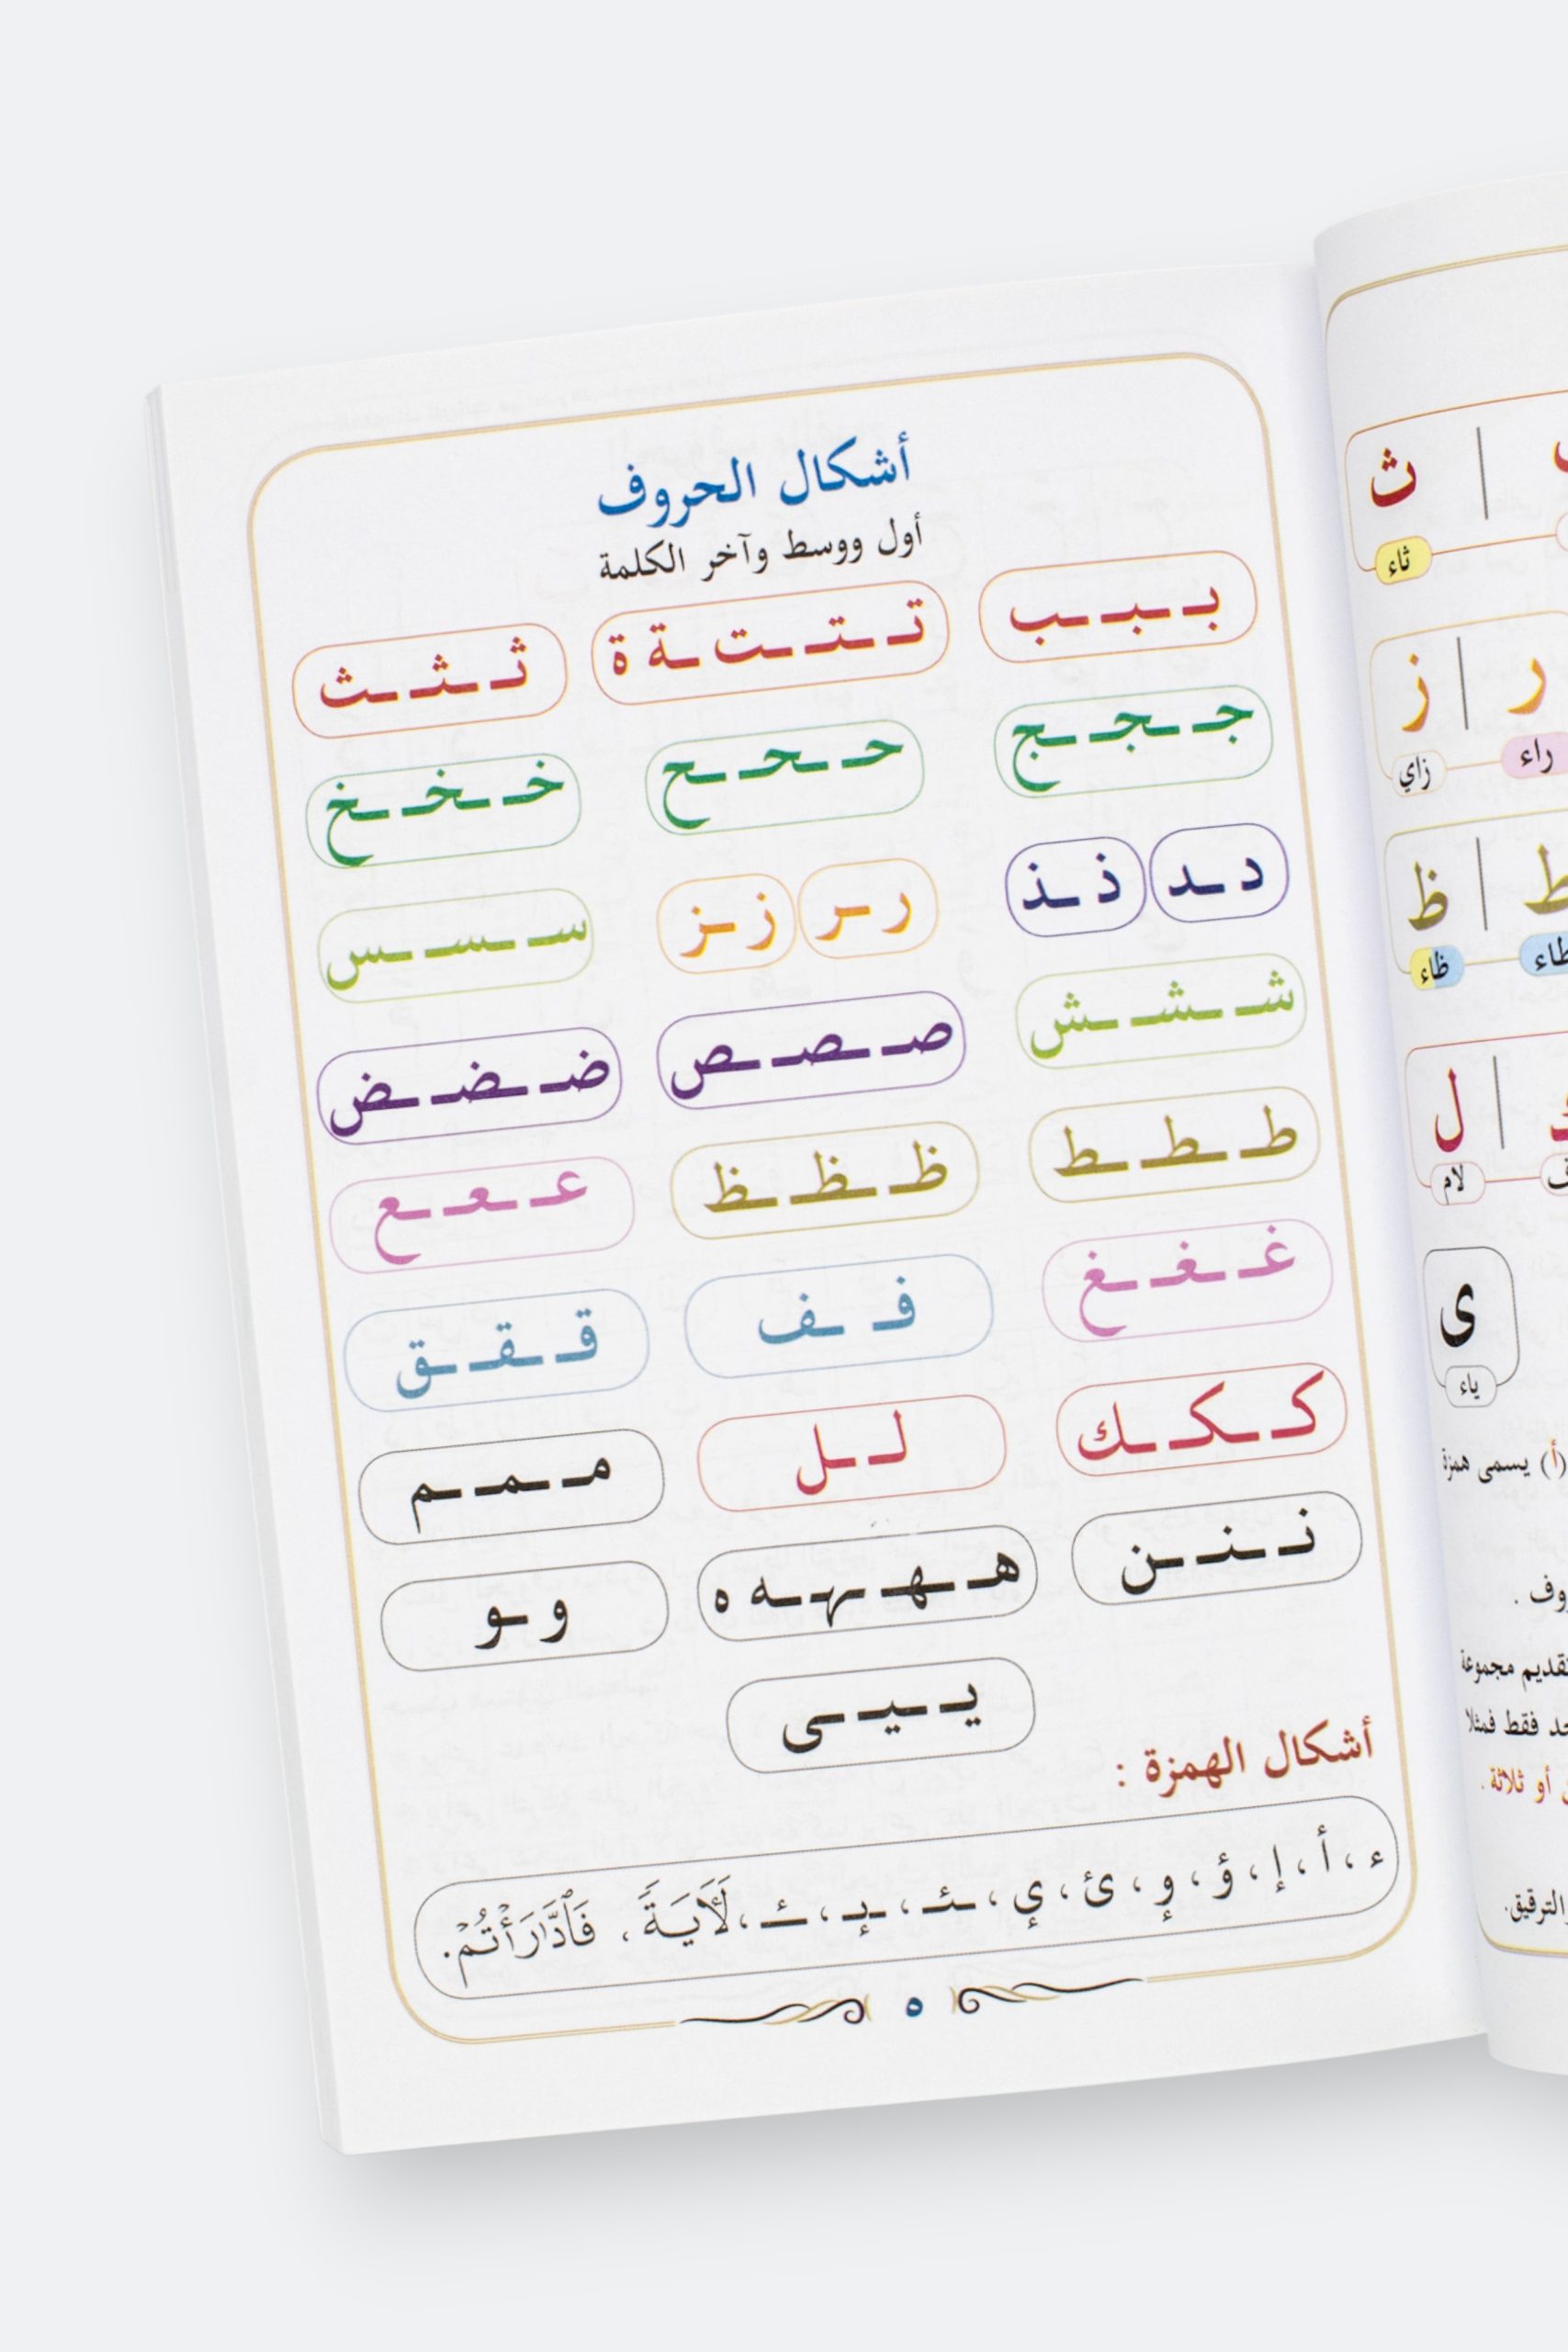 أشكال الحروف
أول ووسط وآخر الكلمة
بـ ـبـ ـب
تـ ـتـ ـت ـة ة
ثـ ـثـ ـث
جـ ـجـ ـج
حـ ـحـ ـح
خـ ـخـ ـخ
د ـد
ذ ـذ
ر ـر
ز ـز
سـ ـسـ ـس
شـ ـشـ ـش
صـ ـصـ ـص
ضـ ـضـ ـض
طـ ـطـ ـط
ظـ ـظـ ـظ
عـ ـعـ ـع
غـ ـغـ ـغ
فـ ـف
قـ ـقـ ـق
كـ ـكـ ـك
لـ ـل
مـ ـمـ ـم
نـ ـنـ ـن
هـ ـهـ ـہـ ـه ه
و ـو
يـ ـيـ ـى
أشكال الهمزة :
ء ، أ ، إ ، ؤ ، وٕ ، ئ ، ىٕ ، ـئـ ، ـىٕـ ، ـئـ ، لَأٓيَـةً ، فَٱدَّٰرَٰٔتُمۡ.
٥
ث
ثاء
ر | ز
راء
زاي
ط | ظ
طاء
ظاء
ل
لام
ى
ياء
(أ) يسمى همزة
تقديم مجموعة
فقط فمثلا
أو ثلاثة .
الترقيق.